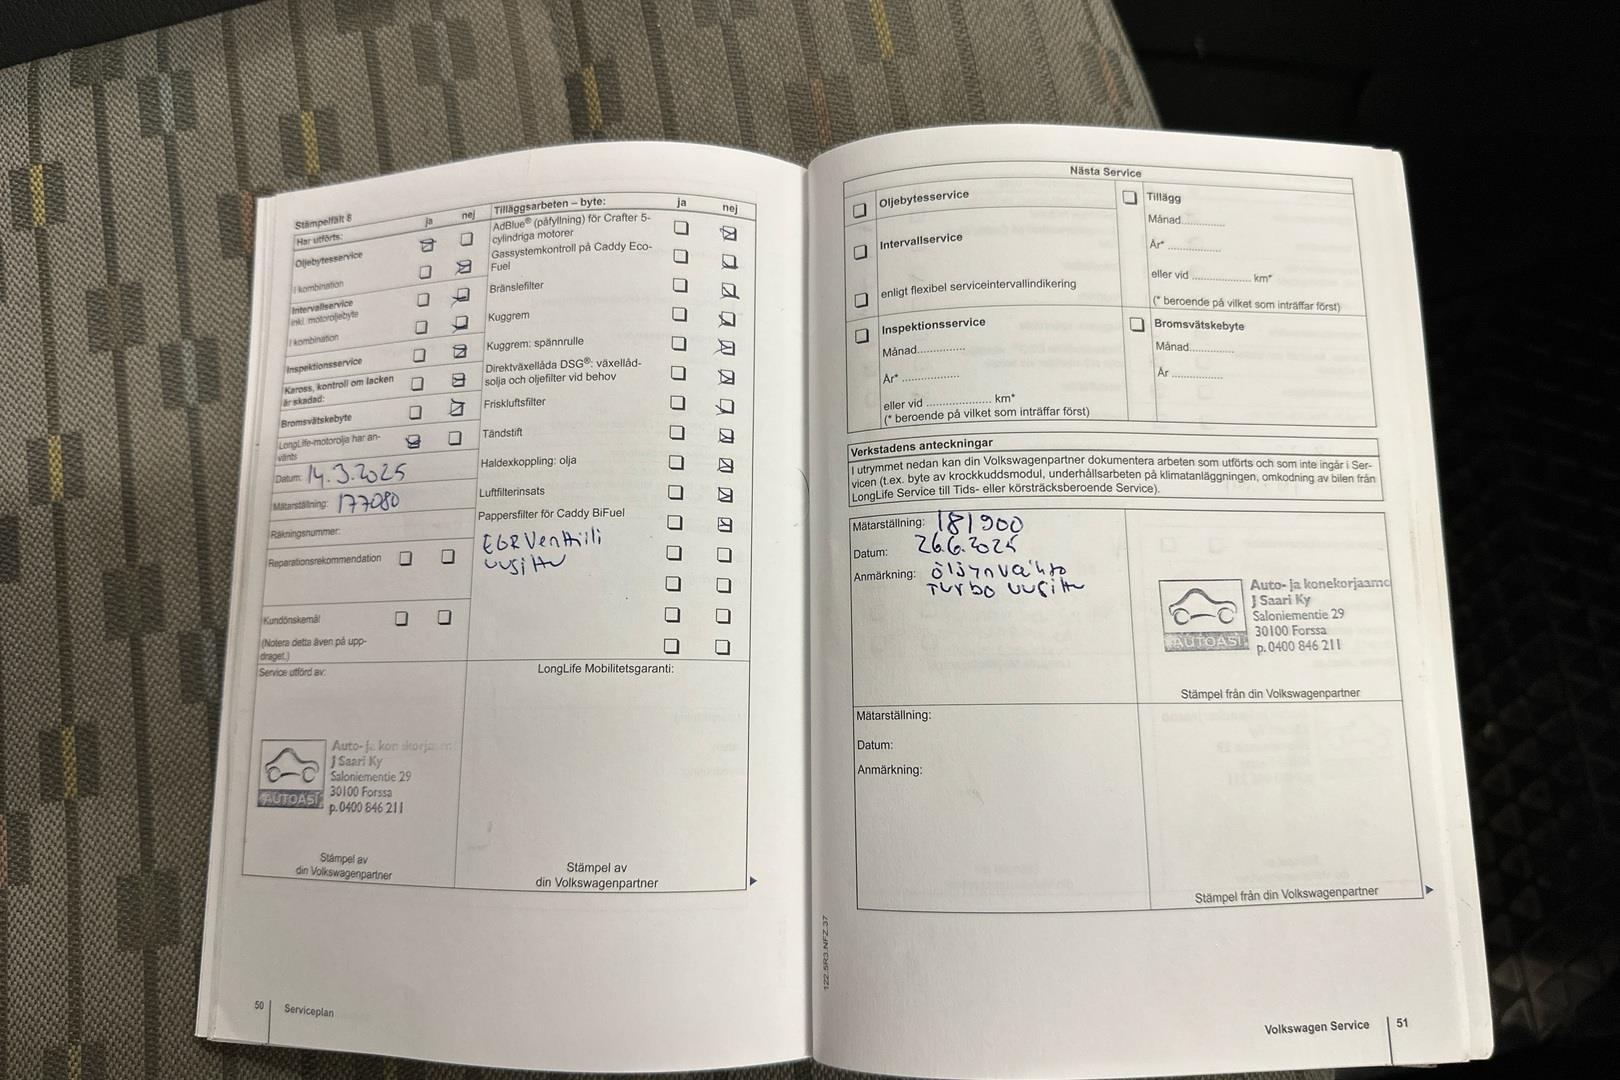 Stämpelfält 8
ja
nej
Har utförts:
Oljebytesservice
I kombination
Intervallservice
inkl. motoroljebyte
I kombination
Inspektionsservice
Kaross, kontroll om lacken
är skadad:
Bromsvätskebyte
LongLife-motorolja har an-
vänts
Datum: 14.3.2025
Mätarställning: 177080
Räkningsnummer:
Reparationsrekommendation
Kundönskemål
(Notera detta även på upp-
draget.)
Service utförd av:
Auto- ja konekorjaamo
J Saari Ky
Saloniementie 29
30100 Forssa
p.0400 846 211
AUTOASI
Stämpel av
din Volkswagenpartner
Tilläggsarbeten – byte:
ja
nej
AdBlue® (påfyllning) för Crafter 5-
cylindriga motorer
Gassystemkontroll på Caddy Eco-
Fuel
Bränslefilter
Kuggrem
Kuggrem: spännrulle
Direktväxellåda DSG®: växellåd-
solja och oljefilter vid behov
Friskluftsfilter
Tändstift
Haldexkoppling: olja
Luftfilterinsats
Pappersfilter för Caddy BiFuel
EGR Venttiili
uusittu
LongLife Mobilitetsgaranti:
Stämpel av
din Volkswagenpartner
50
Serviceplan
Nästa Service
Oljebytesservice
Intervallservice
enligt flexibel serviceintervallindikering
Tillägg
Månad..............
År* ..................
eller vid .................... km*
(* beroende på vilket som inträffar först)
Inspektionsservice
Månad................
År* ...................
eller vid ...................... km*
(* beroende på vilket som inträffar först)
Bromsvätskebyte
Månad...............
År .................
Verkstadens anteckningar
I utrymmet nedan kan din Volkswagenpartner dokumentera arbeten som utförts och som inte ingår i Ser-
vicen (t.ex. byte av krockkuddsmodul, underhållsarbeten på klimatanläggningen, omkodning av bilen från
LongLife Service till Tids- eller körsträcksberoende Service).
Mätarställning: 181900
Datum: 26.6.2025
Anmärkning: öljynvaihto
Turbo uusittu
Auto- ja konekorjaamo
J Saari Ky
Saloniementie 29
30100 Forssa
p.0400 846 211
AUTOASI
Stämpel från din Volkswagenpartner
Mätarställning:
Datum:
Anmärkning:
Stämpel från din Volkswagenpartner
122.5R3.NFZ.37
Volkswagen Service
51